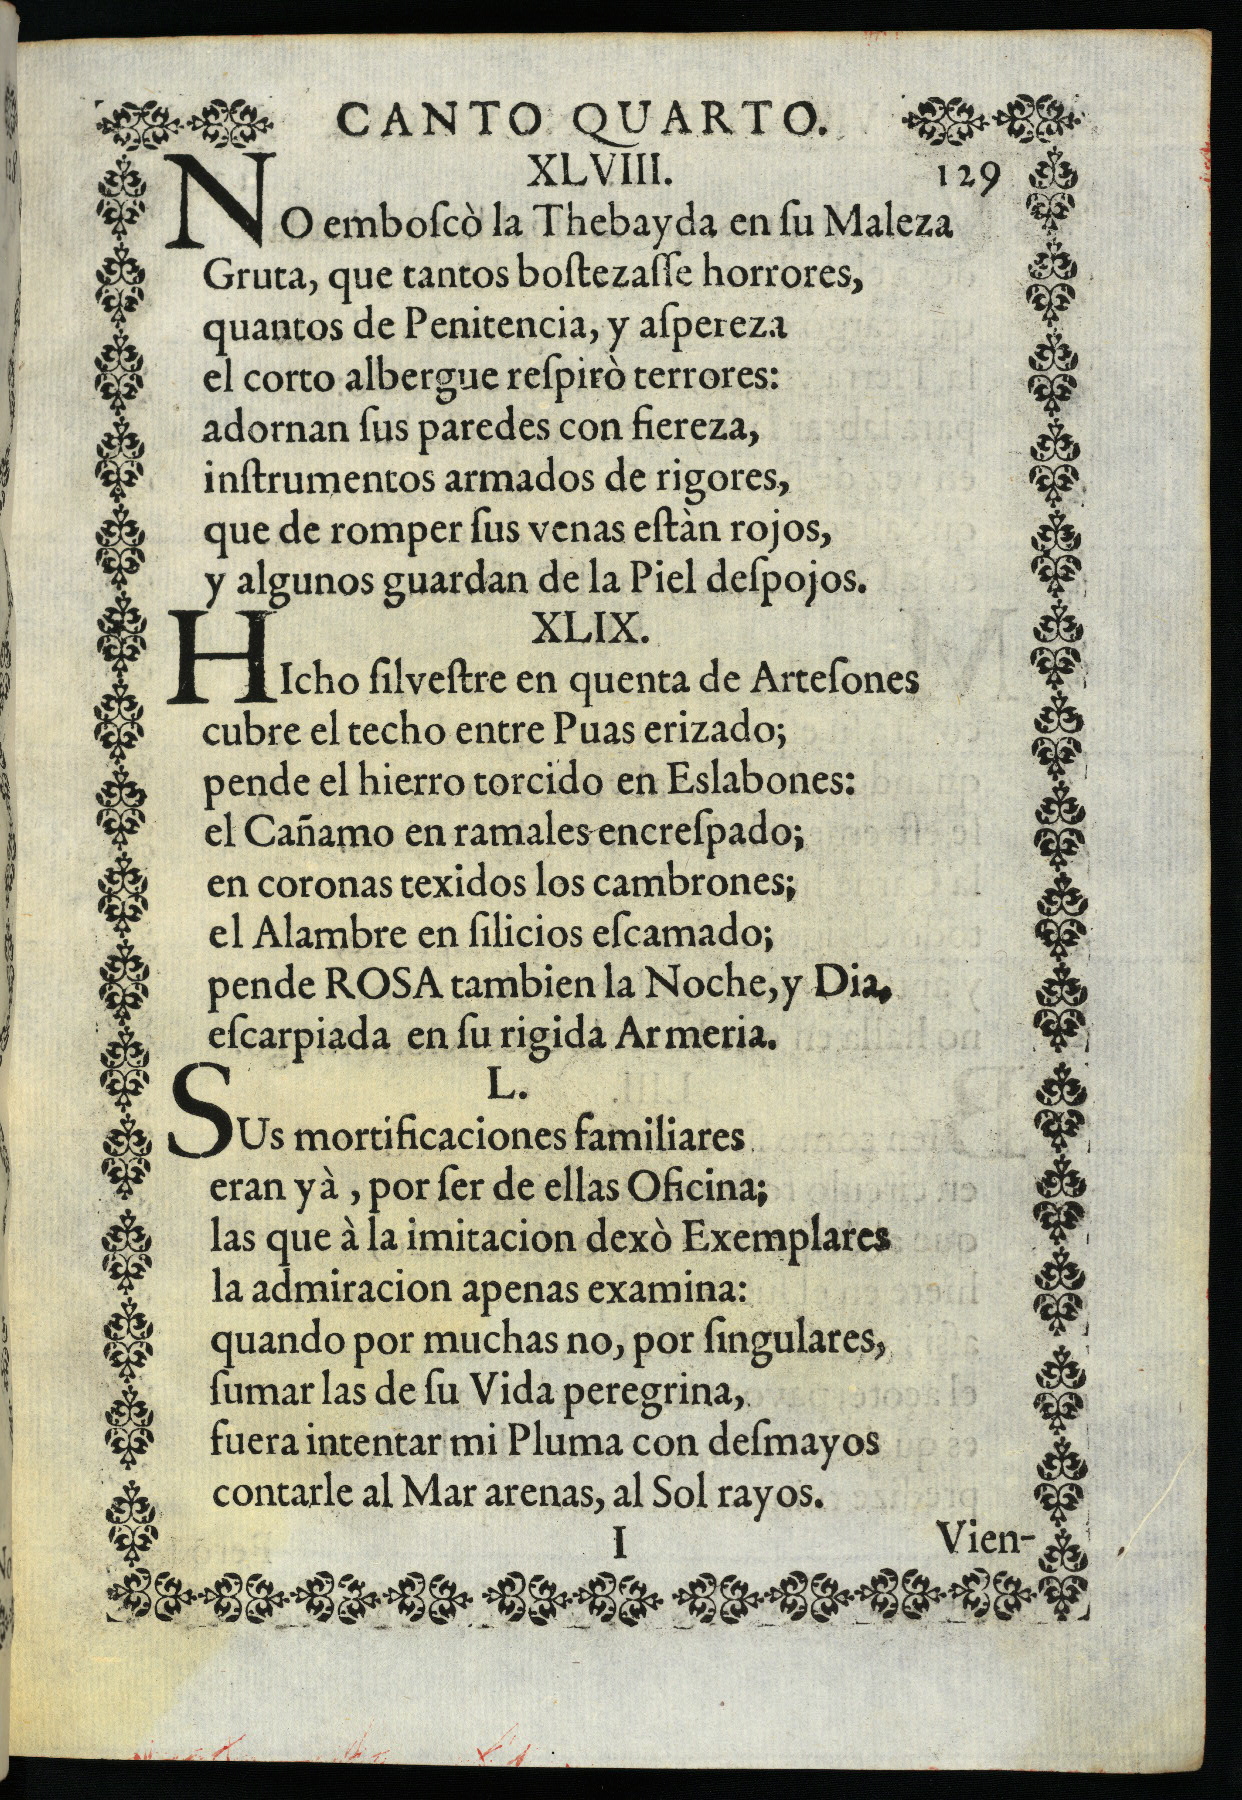 CANTO QUARTO.
XLVIII. 129
NO emboſcò la Thebayda en ſu Maleza
Gruta, que tantos boſtezaſſe horrores,
quantos de Penitencia, y aſpereza
el corto albergue reſpirò terrores:
adornan ſus paredes con fiereza,
inſtrumentos armados de rigores,
que de romper ſus venas eſtàn rojos,
y algunos guardan de la Piel deſpojos.
XLIX.
HIcho ſilveſtre en quenta de Arteſones
cubre el techo entre Puas erizado;
pende el hierro torcido en Eslabones:
el Cañamo en ramales encreſpado;
en coronas texidos los cambrones;
el Alambre en ſilicios eſcamado;
pende ROSA tambien la Noche, y Dia,
eſcarpiada en ſu rigida Armeria.
L.
SUs mortificaciones familiares
eran yà, por ſer de ellas Oficina;
las que à la imitacion dexò Exemplares
la admiracion apenas examina:
quando por muchas no, por ſingulares,
ſumar las de ſu Vida peregrina,
fuera intentar mi Pluma con deſmayos
contarle al Mar arenas, al Sol rayos.
I Vien-